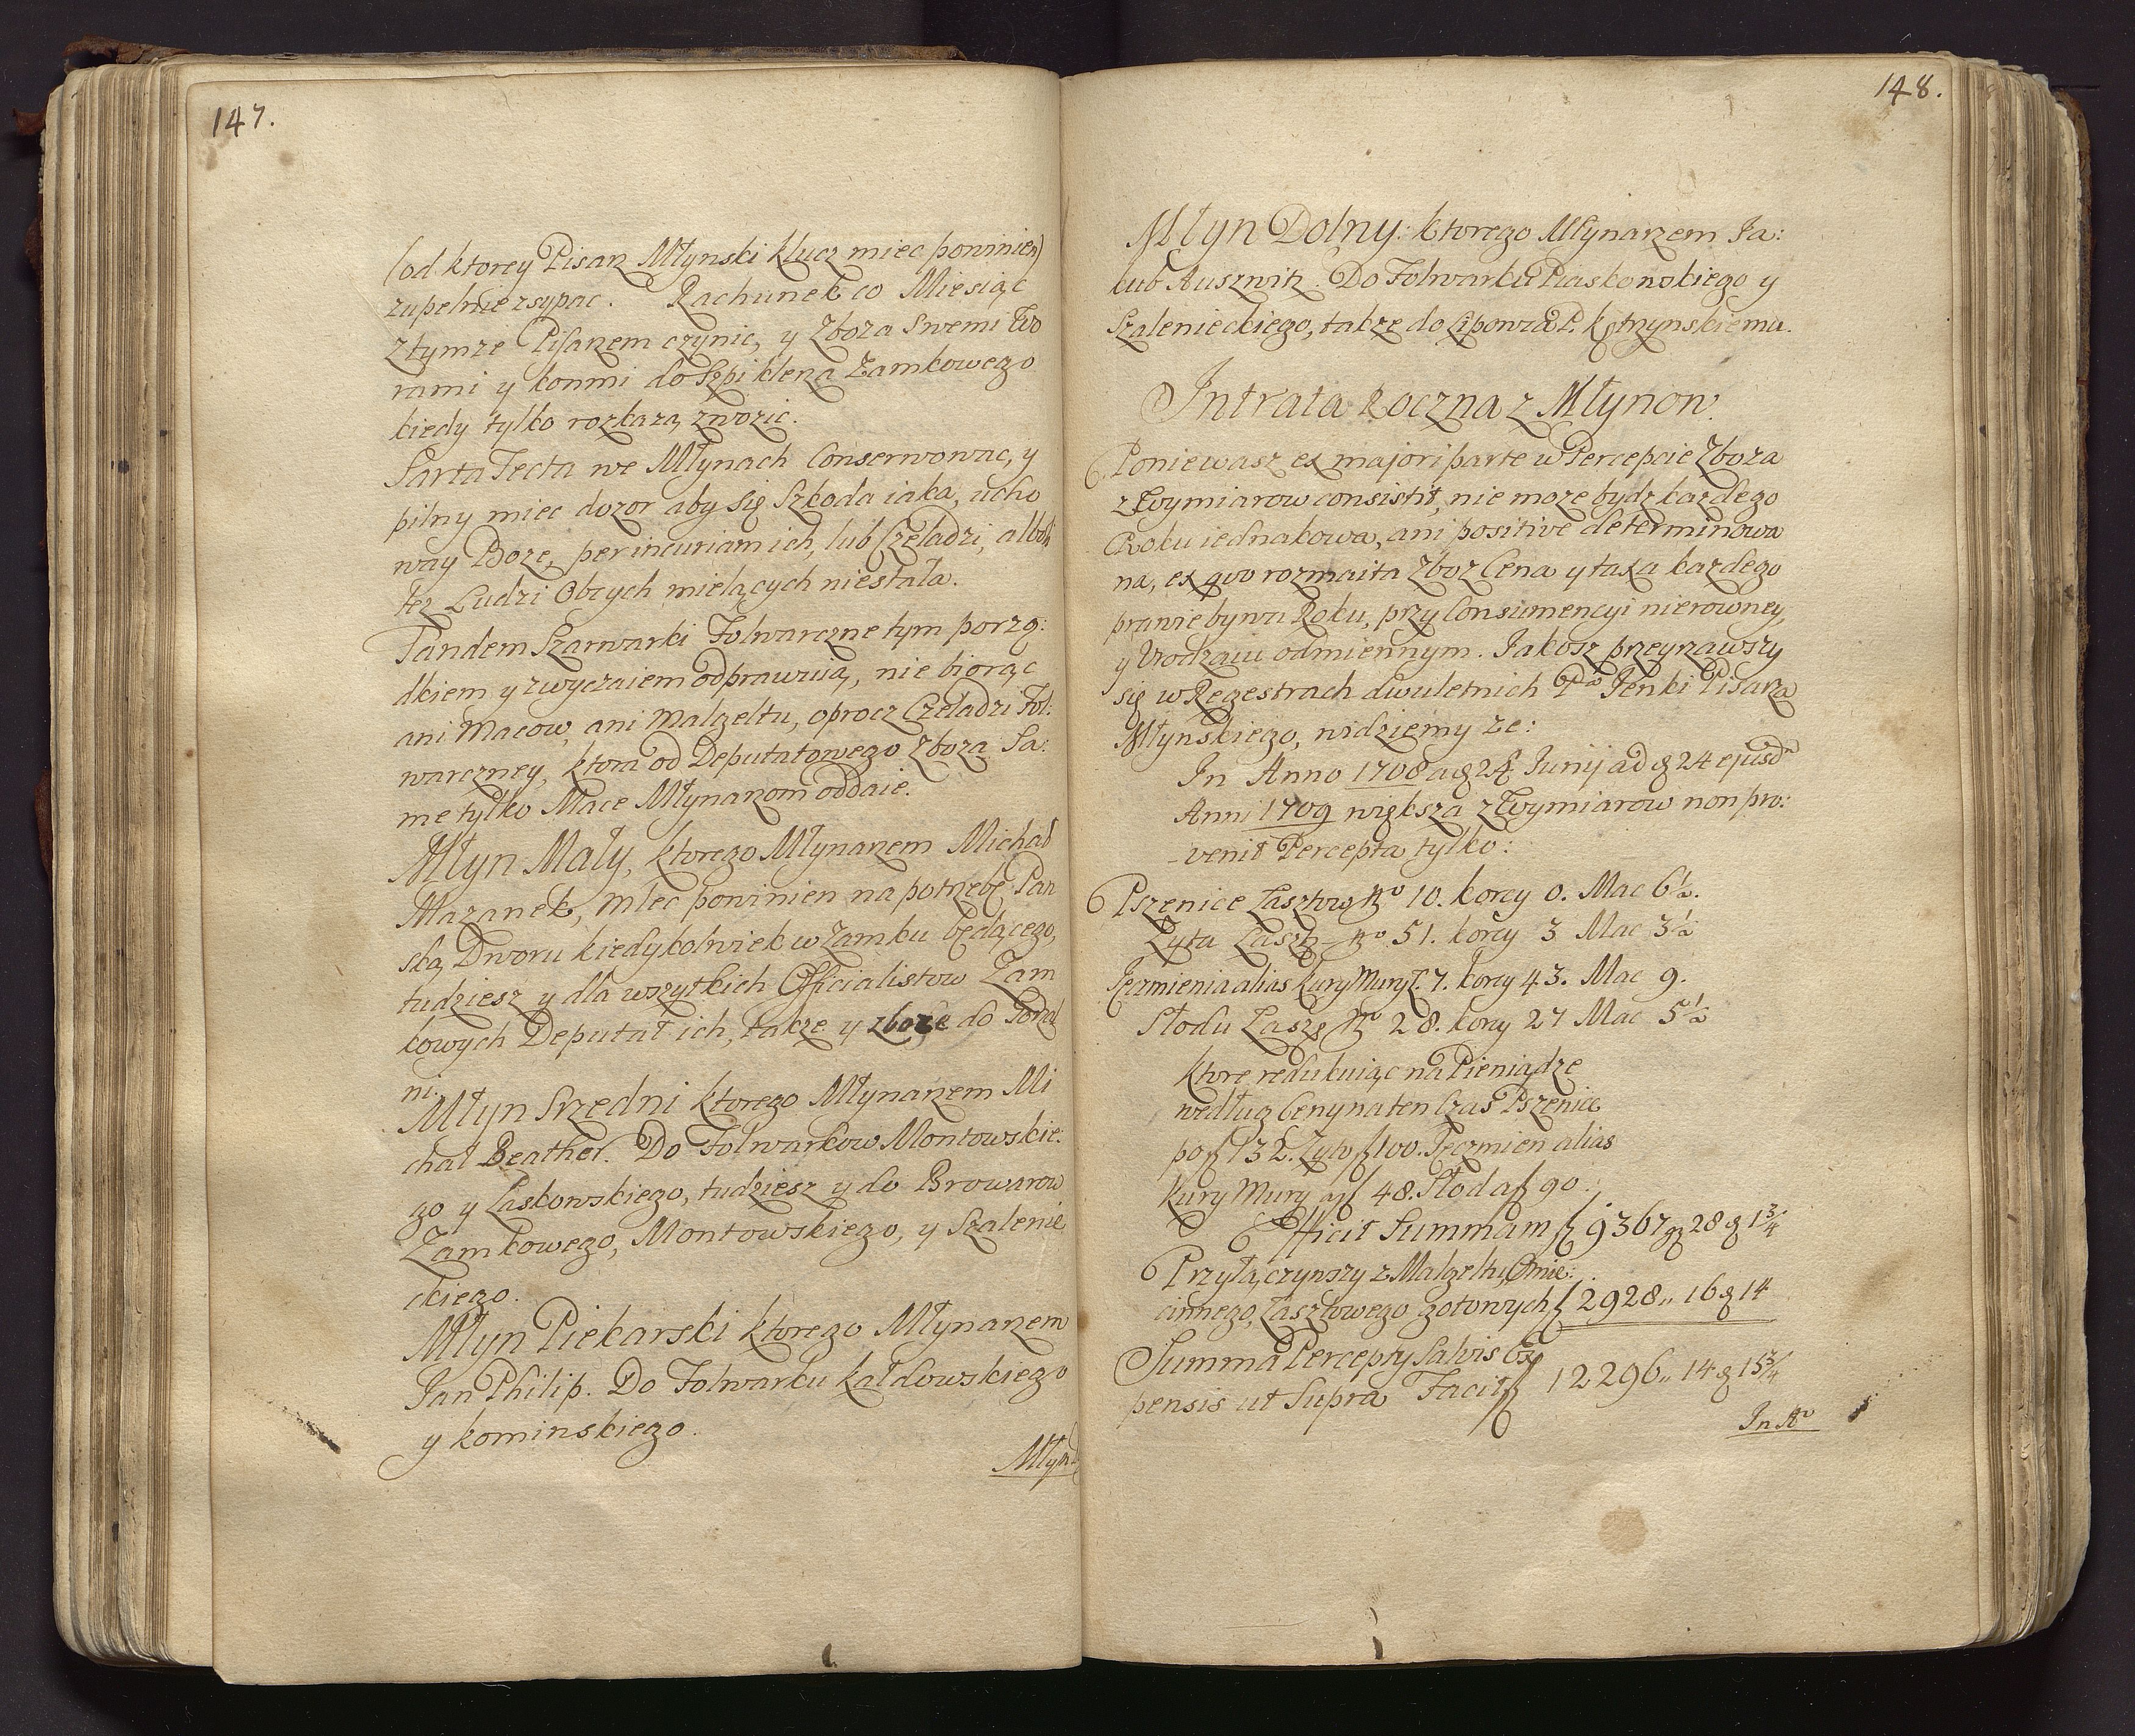 147.
(od ktorey Pisarz Młynski Klucz miec powinien)
zupełnie zsypac. Rachunek co Miesiąc
z tymze Pisarzem czynic, y Zboza Swemi Wo
zami y konmi do Szpiklerza Zamkowego
kiedy tylko rozkazą zwozic.
Sarta Tecta we Młynach Conserwowac, y
pilny miec dozor aby się Szkoda iaka, ucho
way Boze, per incuriam ich, lub Czeladzi, albo
tez Ludzi Obcych mielących niestała.
Tandem Szarwarki Folwarczne tym porzą:
dkiem y zwyczaiem odprawuią, nie biorąc
ani Macow, ani Malgeltu, oprocz Czeladzi Fol:
warczney, ktora od Deputatowego Zboza Sa:
me tylko Mace Młynarzom oddaie.
Młyn Mały, ktorego Młynarzem Michał
Mazanek, mlec powinien na potrzebę Pan
ską Dworu kiedykolwiek w Zamku będącego,
tudziesz y dla wszytkich Officialistow Zam
kowych Deputat ich, takze y zboze do Gorzal
ni.
Młyn Srzedni ktorego Młynarzem Mi
chał Beather. Do Folwarkow Montowskie:
go y Laskowskiego, tudziesz y do Browarow
Zamkowego, Montowskiego, y Szalenie
ckiego.
Młyn Piekarski ktorego Młynarzem
Jan Philip. Do Folwarku Kałdowskiego
y kominskiego.
Młyn
148.
Młyn Dolny: ktorego Młynarzem Ja:
kub Auszwitz. Do Folwarku Piaskowskiego y
Szalenieckiego, takze do Lipowza P. Kętrzynskiemu.
Intrata Roczna z Młynow.
Poniewasz ex majori parte w Percepcie Zboza
z Wymiarow consistit, nie moze bydz kazdego
Roku iednakowa, ani positive determinowa
na, ex quo rozmaita Zboz Cena y taxa kazdego
prawie bywa Roku, przy Consumencyi nierowney,
y Urodzaiu odmiennym. Jakosz przeyrzawszy
się w Regestrach dwuletnich Pa Jenki Pisarza
Młynskiego, widziemy ze:
In Anno 1708 a d 24 Junij ad d 24 ejusd
Anni 1709 większa z Wymiarow non pro:
-venit Percepta tylko:
Pszenice Lasztow No 10. korcy 0. Mac 6½.
Zyta Laszt No 51. korcy 3 Mac 3½
Jęczmienia alias Kury Mury Ł. 7. korcy 43. Mac 9.
Słodu Lasz No 28. korcy 27 Mac 5½
ktore redukuiąc na Pieniądze
według Ceny na ten Czas Pszenice
po fl 132. Zyto fl 100. Jęczmien alias
Kury Mury a fl 48. Słod a fl 90.
Efficit Summam fl 9367 gr 28 d 1¾
Przyłączywszy z Malgeltu, Omie:
cinnego, Lasztowego gotowych fl 2928„ 16 d 14
Summa Percepty Salvis Ex
pensis ut Supra Facit fl 12296„ 14 d 15¾
In Ao